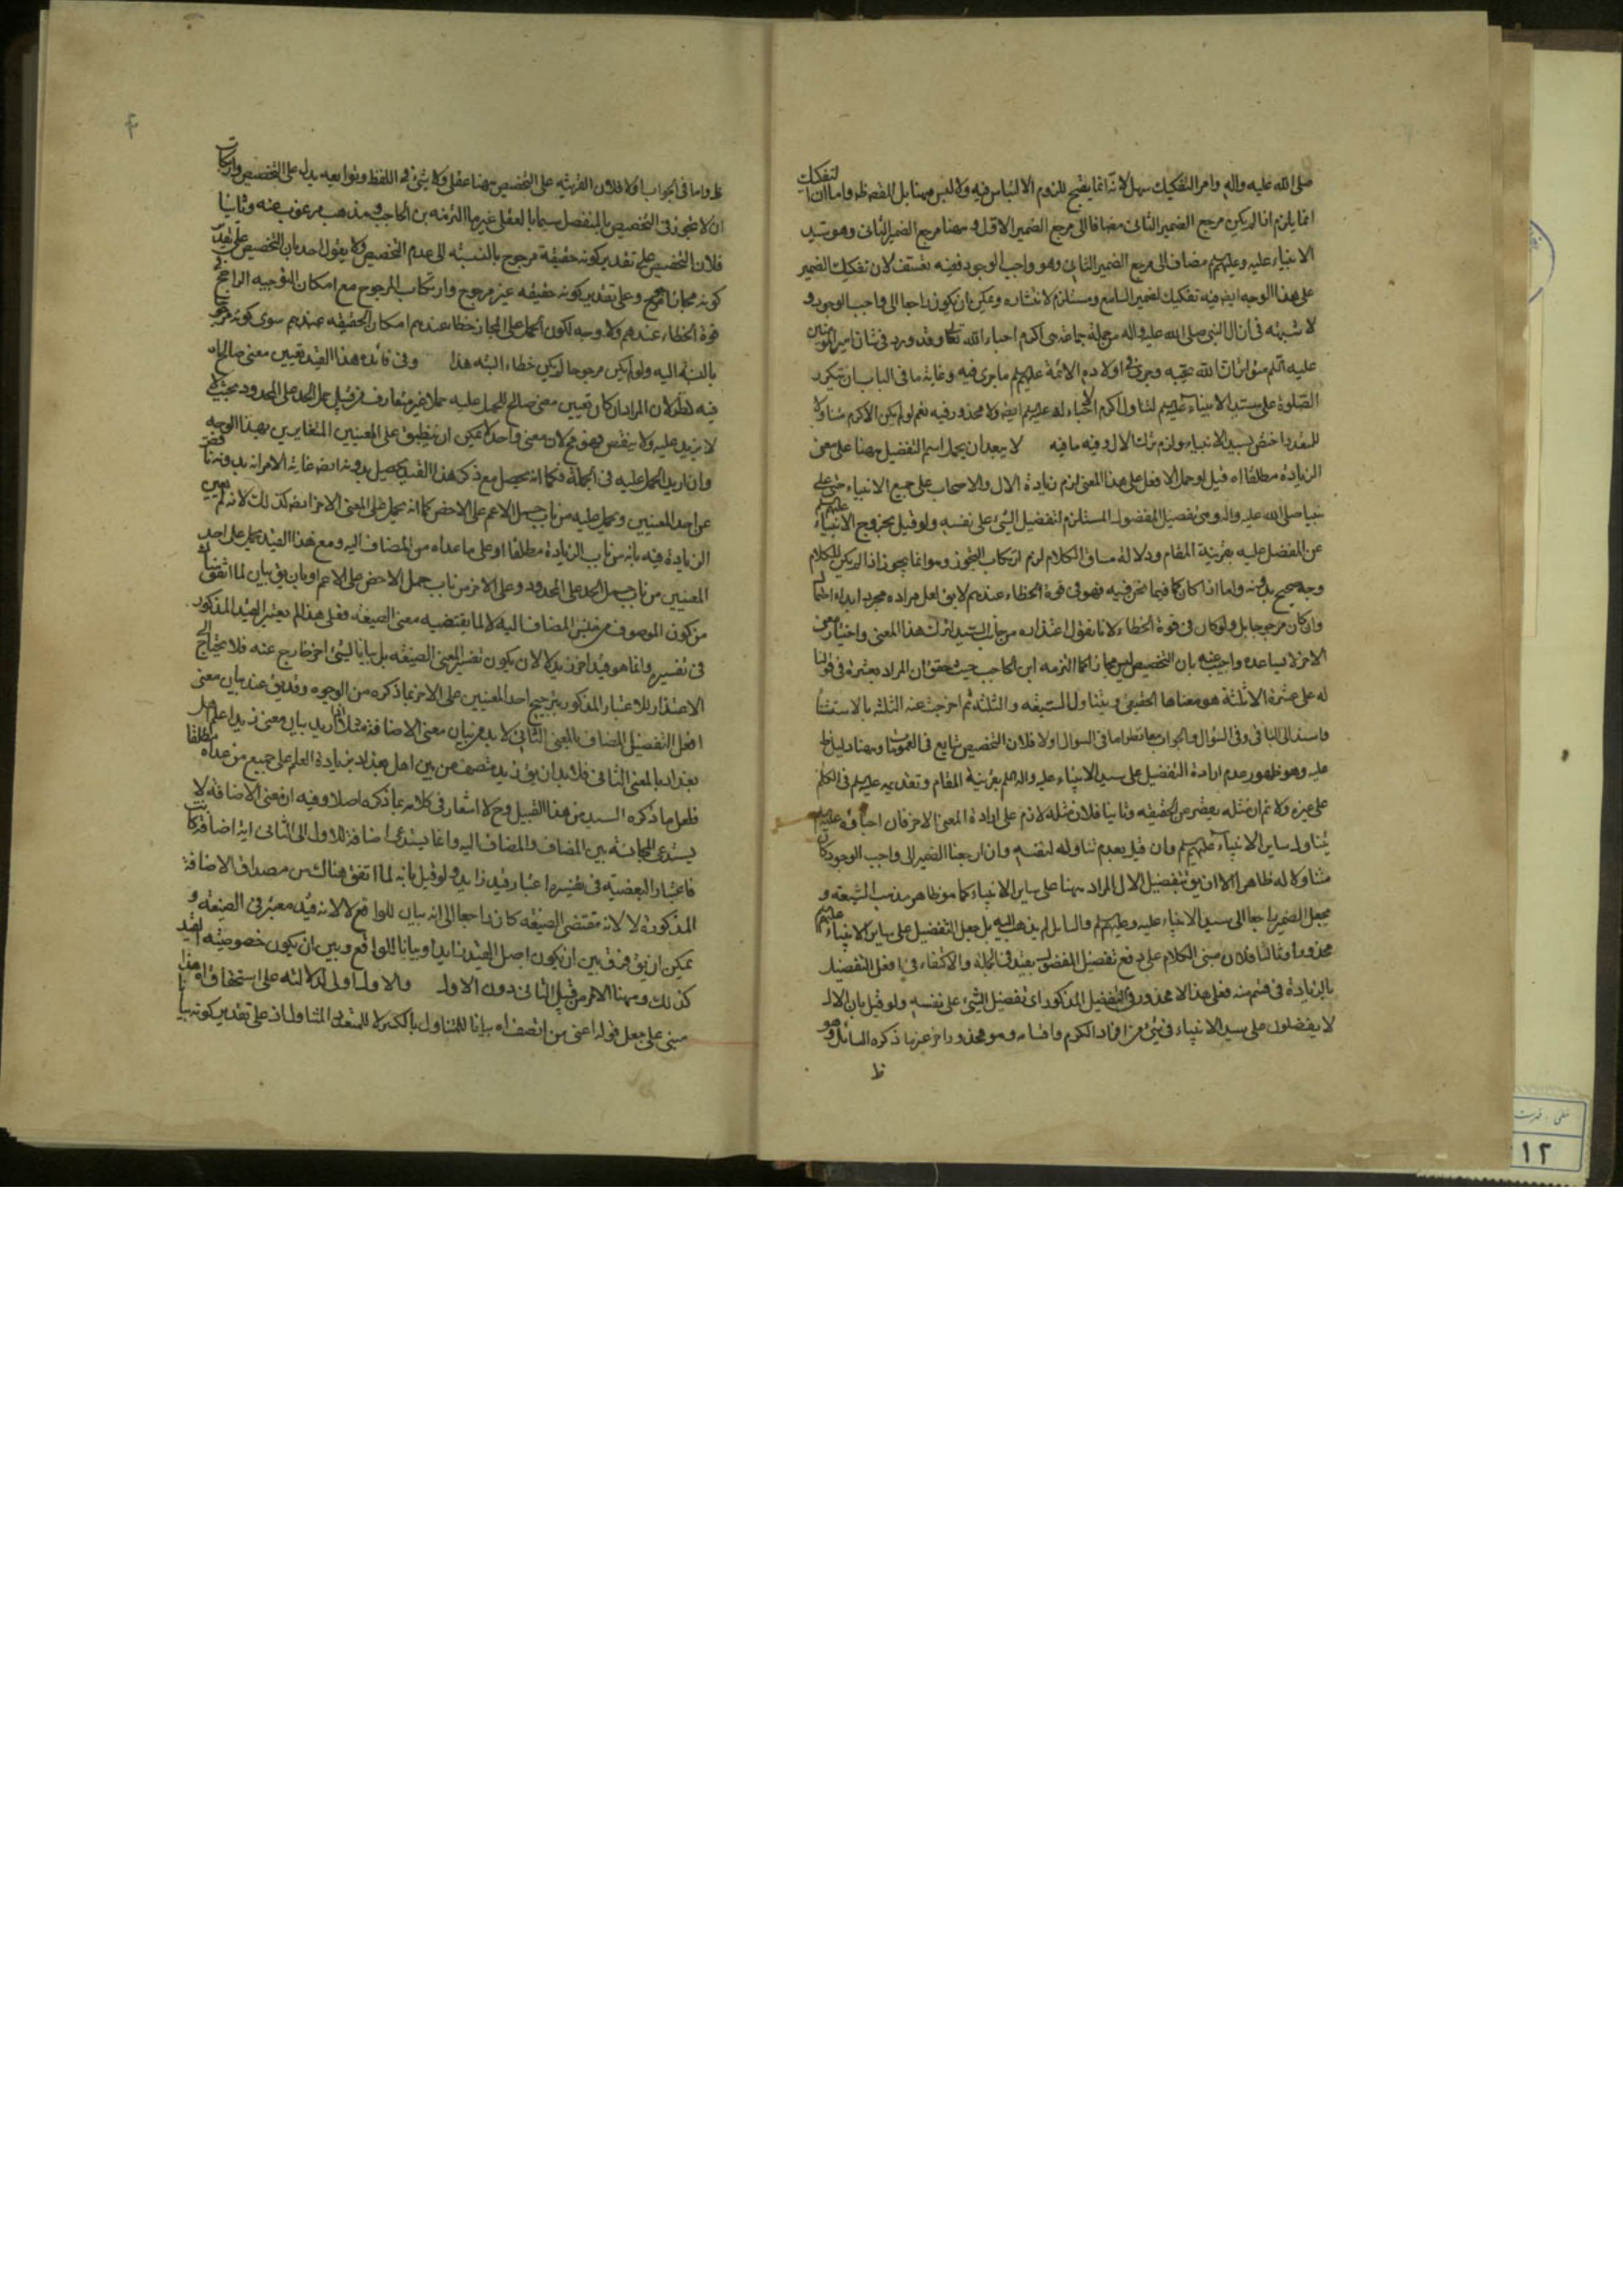 صلى الله عليه واله وامر التفكيك سهل لانه انما يقبح للزوم الالتباس فيه ولا لبس ههنا بل للفصه ظ واما ان التفكيك
انما يلزم اذا لم يكن مرجع الضمير الثانى مضافا الى مرجع الضمير الاول وههنا مرجع الضمير الثانى وهو سيد
الانبياء عليه وعليهم مضاف الى مرجع الضمير الثانى وهو واجب الوجود ففيه تعسف لان تفكيك الضمير
على هذا الوجه ايضا فيه تفكيك لضمير السامع ومستلزم لانتشاره ويمكن ان يكون راجعا الى واجب الوجود و
لا شبهة فى ان ال النبى صلى الله عليه واله من جملة جماعة هى اكرم احباء الله تعالى وقد ورد فى شان امير المؤمنين
عليه السلم ان الله يحبه وجرى فى اولاده الائمة عليهم ما جرى فيه وغاية ما فى الباب ان يتكرر
الصلوة على سيد الانبياء عليهم لتناول اكرم الاحباء له عليهم ايضا ولا محذور فيه نعم لو لم يكن الاكرم متناولا
للمتعدد اختص بسيد الانبياء ولزم ترك الال وفيه ما فيه لا يبعد ان يحمل اسم التفضيل ههنا على معنى
الزيادة مطلقا اه قيل لو حمل الافعل على هذا المعنى لزم زيادة الال والاصحاب على جميع الانبياء حتى على
نبينا صلى الله عليه واله وهى تفضيل المفضول المستلزم لتفضيل الشئ على نفسه ولو قيل بخروج الانبياء عليهم
عن المفضل عليه بقرينة المقام ودلالة مساق الكلام لزم ارتكاب التجوز وهو انما يجوز اذا لم يكن للكلام
وجه صحيح بدونه واما اذا كان كما فيما نحن فيه فهو فى قوة الخطاء عندهم لا يق لعل مراده مجرد ابداء احتمال
وان كان مرجوحا بل ولو كان فى قوة الخطاء لانا نقول اعتذاره من جانب السيد لترك هذا المعنى واختيار معنى
الاخر لا يساعده واجيب عنه بان التخصيص ليس مجازا كما التزمه ابن الحاجب حيث حقق ان المراد بعشرة فى قولنا
له على عشرة الا ثلثة هو معناها الحقيقى ويتناول السبعة والثلثة ثم اخرجت عنه الثلثة بالاستثناء
واسند الى الباقى وفى السؤال والجواب معا نظر اما فى السؤال اولا فلان التخصيص شايع فى العمومات وههنا دليل ظ
عليه وهو ظهور عدم ارادة التفضيل على سيد الانبياء عليه واله السلم بقرينة المقام وتقديمه عليهم فى الكلم
على غيره ولا ثم ان مثله يعضر عن الحقيقة وثانيا فلان مثله لازم على ارادة المعنى الاخر فان احباؤه عليهم
يتناول ساير الانبياء عليهم وان قيل بعدم تناوله لنفسه وان ارجعنا الضمير الى واجب الوجود كان
متناولا له ظاهرا الا ان يق بتفضيل الال المراد ههنا على ساير الانبياء كما هو ظاهر مذهب الشيعة و
بجعل الضمير راجعا الى سيد الانبياء عليه وعليهم والسايل لم يذهب اليه بل جعل التفضيل على ساير الانبياء عليهم
محذورا وثالثا فلان مبنى الكلام على دفع تفضيل المفضول بقيد فى الجملة والاكتفاء فى افعل التفضيل
بالزيادة فى قسم منه فعلى هذا لا محذور فى التفضيل المذكور اى تفضيل الشئ على نفسه ولو قيل بان الال
لا يفضلون على سيد الانبياء فى شئ من افراد الكرم واقسامه وهو محذور اخر غير ما ذكره السائل وهو
ظ
ظ واما فى الجواب اولا فلان القرينة على التخصيص ههنا عقلى ولا شئ فى اللفظ وتوابعه يدل على التخصيص وارتكاب
ان لا تجوز فى التخصيص بالمنفصل سيما بالعقلى غير ما التزمه ابن الحاجب ومذهب مرغوب عنه وثانيا
فلان التخصيص على تقدير كونه حقيقة مرجوح بالنسبة الى عدم التخصيص ولا يقول احد بان التخصيص على تقدير
كونه مجازا مرجوح وعلى تقدير كونه حقيقة غير مرجوح وارتكاب المرجوح مع امكان التوجيه الراجح فى
قوة الخطاء عندهم ولا وجه لكون الحمل على المجاز خطا عندهم امكان الحقيقة عندهم سوى كونه مرجوحا
بالنسبة اليه ولو لم يكن مرجوحا لم يكن خطاء البتة هذا وفى فائدة هذا القيد تعيين معنى صالح اه
فيه نظر لان المراد ان كان تعيين معنى صالح للحمل عليه حملا غير متعارف من قبيل حمل الحد على المحدود بحيث لا
لا يزيد عليه ولا ينقص فهو مم لان معنى واحدا لا يمكن ان ينطبق على المعنيين المتغايرين بهذا الوجه
وان اريد الحمل عليه فى الجملة فكما انه يحصل مع ذكر هذا القيد يحصل بدونه ايضا غاية الامر انه بدونه
عن احد المعنيين ويحمل عليه من باب حمل الاعم على الاخص كما انه يحمل على المعنى الاخر ايضا كذلك لانه لم يعين
الزيادة فيه بانه من باب الزيادة مطلقا او على ما عداه من المضاف اليه ومع هذا القيد يحمل على احد
المعنيين من باب حمل الحد على المحدود وعلى الاخر من باب حمل الاخص على الاعم او بان يق بيان لما اتفق
من كون الموصوف من جنس المضاف اليه لا لما يقتضيه معنى الصيغة فعلى هذا لم يعتبر القيد المذكور
فى تفسيره وانما هو قيد اخر زيد لا لان يكون تفسير المعنى الصيغة بل بيانا لشئ اخر خارج عنه فلا يحتاج الى
الاعتذار للاعتبار المذكور بترجيح احد المعنيين على الاخر بما ذكره من الوجوه وقد يق عند بيان معنى
افعل التفضيل المضاف بالمعنى الثانى لا بد من بيان معنى الاضافة مثلا اذا اريد بيان معنى زيد اعلم اهل
بغداد بالمعنى الثانى فلا بد ان يق زيد متصف من بين اهل بغداد بزيادة العلم على جميع من عداه مطلقا
فلعل ما ذكره السيد من هذا القبيل وح لا اشعار فى كلامه بما ذكره اصلا وفيه ان معنى الاضافة لا
يستدعى المجانسة بين المضاف والمضاف اليه وانما يستدعى اضافة للاول الى الثانى اية اضافة كانت
فاعتبار البعضية فى تفسيره اعتبار قيد زايد ولو قيل بانه لما اتفق هناك من مصداق الاضافة
المذكورة لا لانه مقتضى الصيغة كان راجعا الى انه بيان للواقع لا لانه قيد معتبر فى الصيغة و
يمكن ان يق فرق بين ان يكون اصل القيد زايدا وبيانا للواقع وبين ان يكون خصوصية القيد
كذلك وههنا الامر من قبيل الثانى دون الاول والاول اولى لدلالته على استحقاق اه هذا
مبنى على جعل قوله اعنى من اتصف اه بيانا للمتناول بالكسر لا للمتعدد المتناول اذ على تقدير كونه بيانا